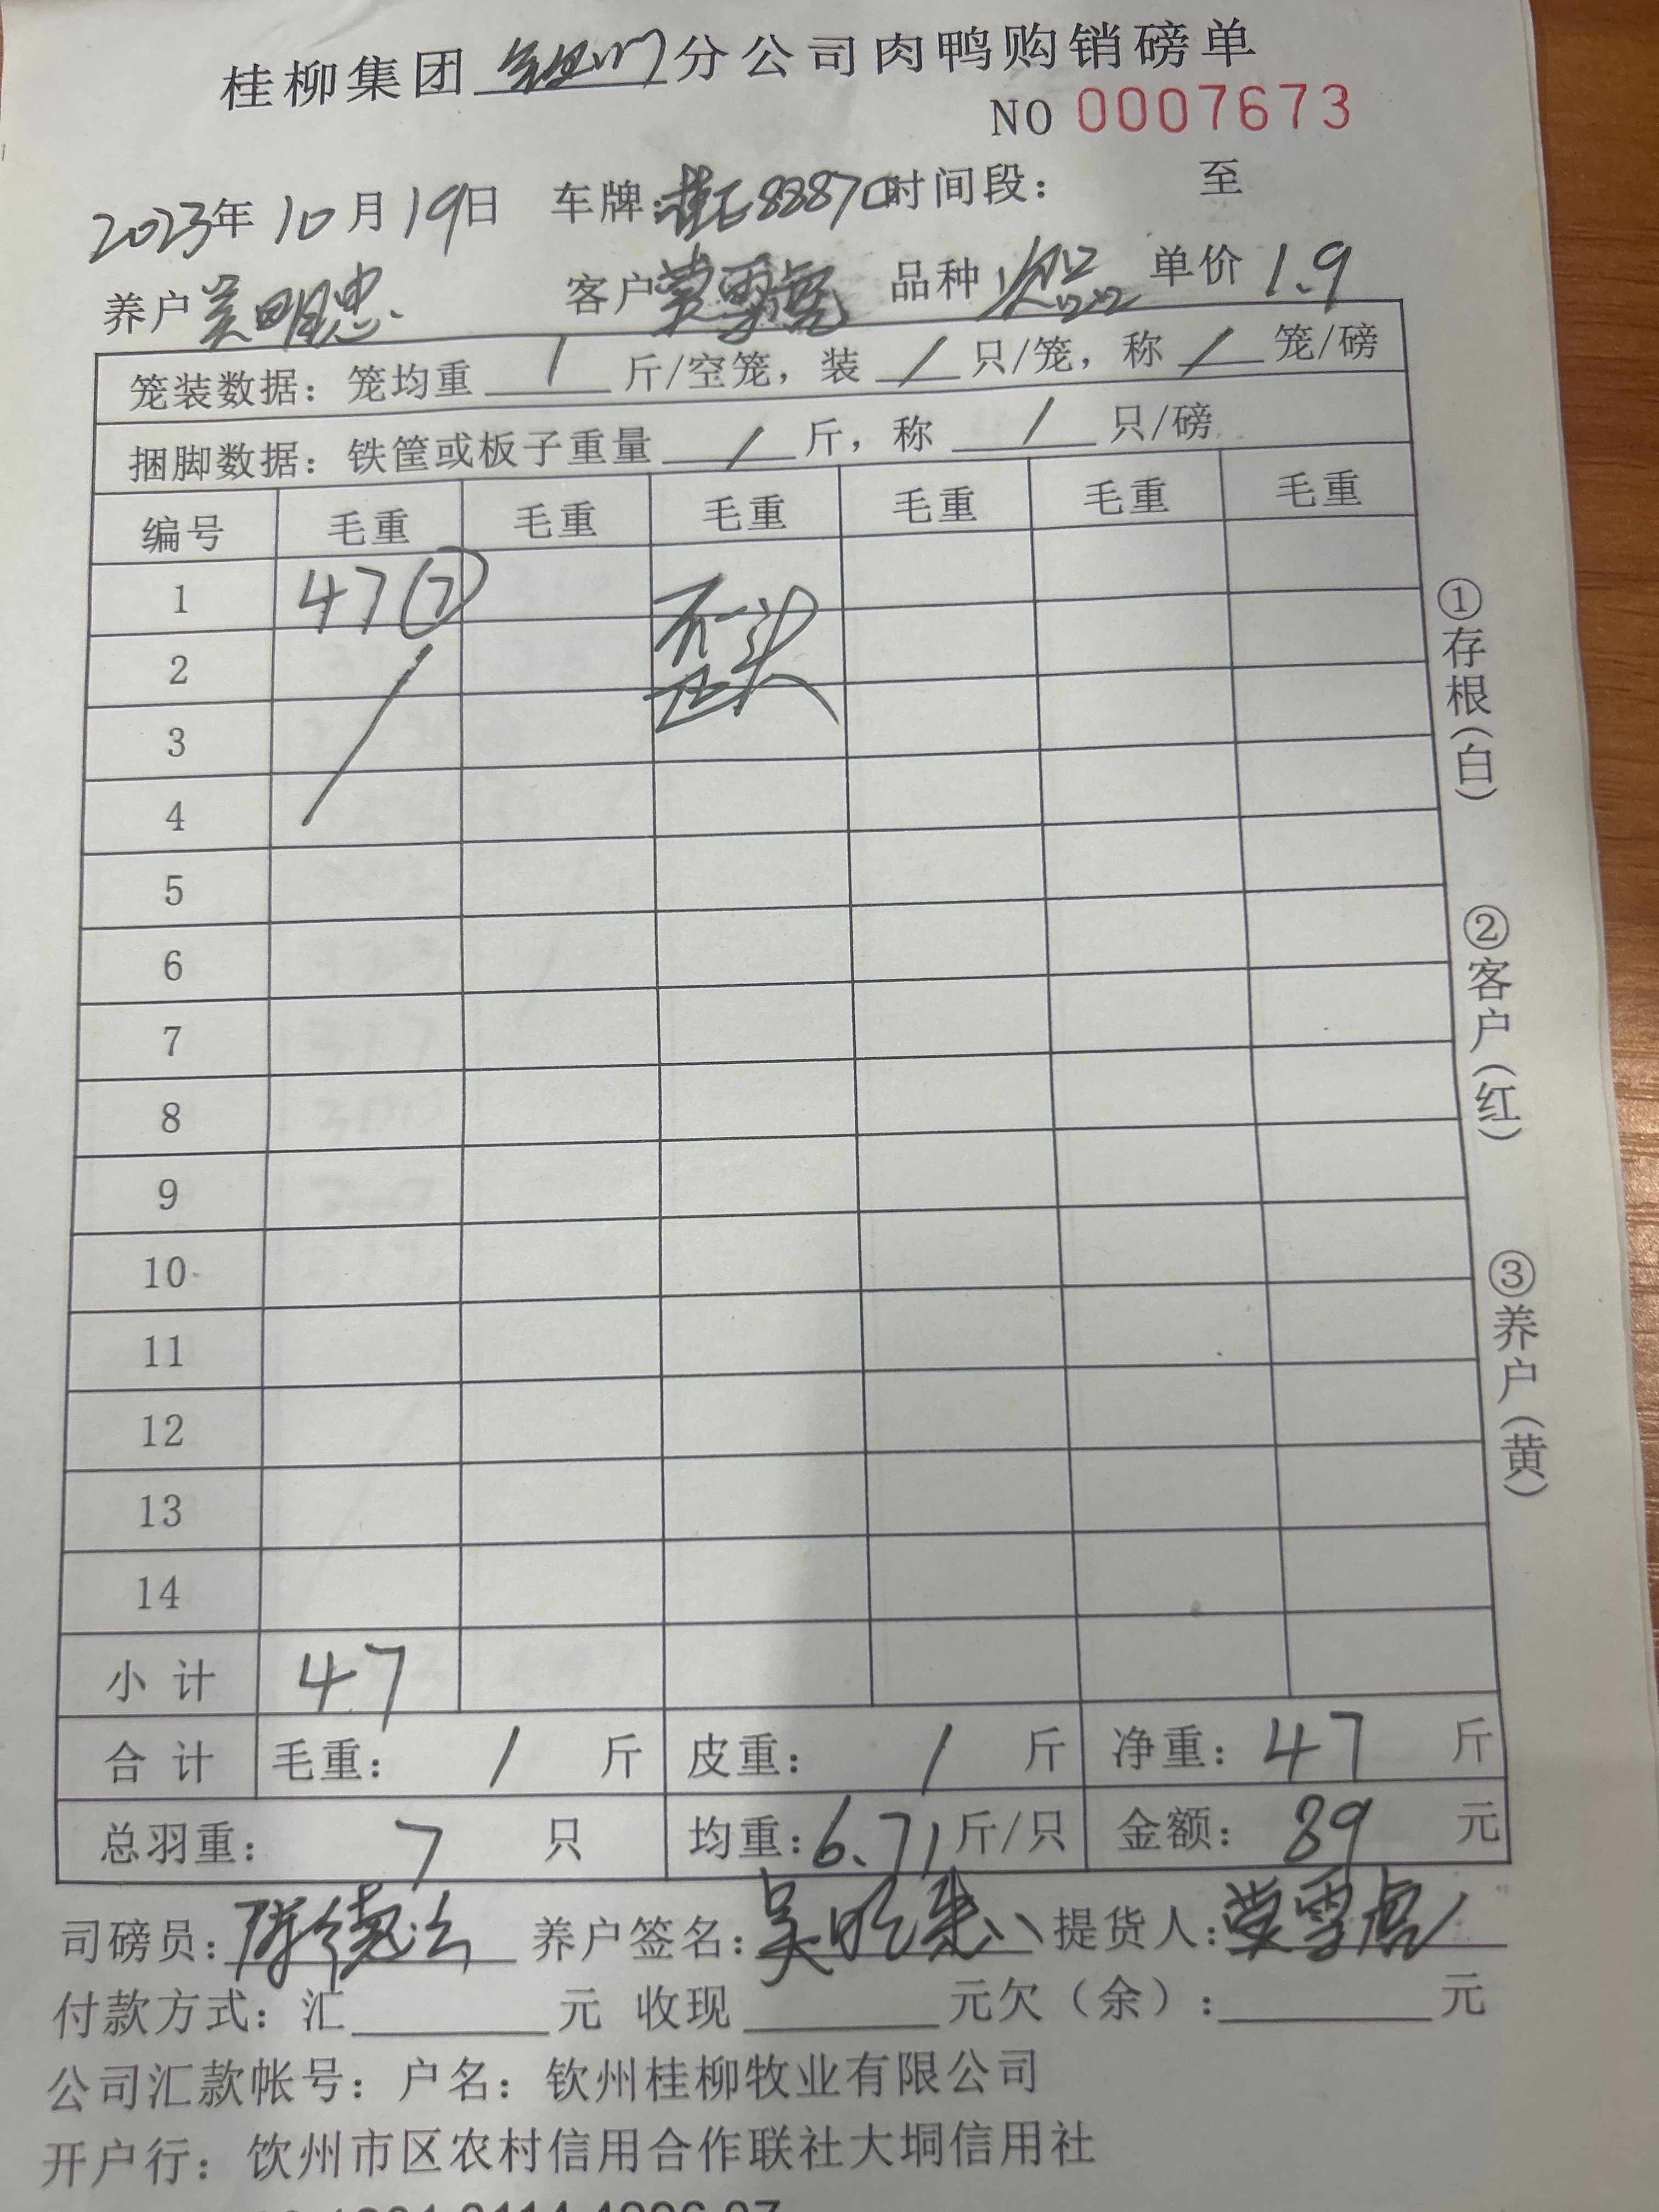 桂柳集团 分公司肉鸭购销磅单
NO 0007673
2023年10月19日 车牌: 88870 时间段: 至
养户 吴明忠 客户 莫雪亮 品种 单价 1.9
笼装数据: 笼均重 / 斤/空笼, 装 / 只/笼, 称 / 笼/磅
捆脚数据: 铁筐或板子重量 / 斤, 称 / 只/磅
编号 毛重 毛重 毛重 毛重 毛重 毛重
1 47(7)
歪头
2
3
4
5
6
7
8
9
10
11
12
13
14
小计 47
合计 毛重: / 斤 皮重: / 斤 净重: 47 斤
总羽重: 7 只 均重: 6.71 斤/只 金额: 89 元
司磅员: 养户签名: 提货人: 莫雪亮
付款方式: 汇 元 收现 元欠（余）: 元
公司汇款帐号: 户名: 钦州桂柳牧业有限公司
开户行: 钦州市区农村信用合作联社大垌信用社
①存根(白)
②客户(红)
③养户(黄)